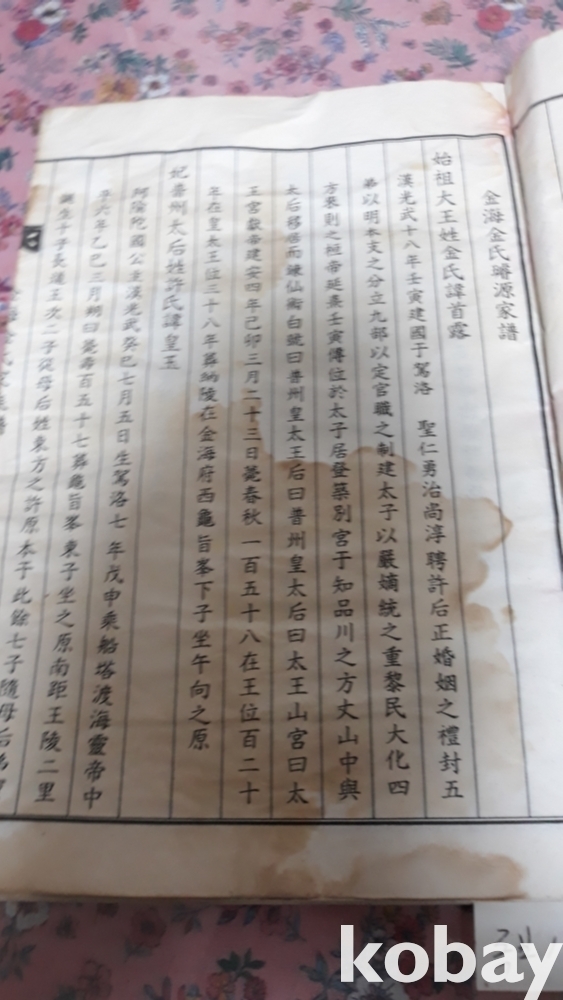 金海金氏璿源家譜
始祖大王姓金氏諱首露
漢光武十八年壬寅建國于駕洛 聖仁勇治尚淳聘許后正婚姻之禮封五
弟以明本支之分立九部以定官職之制建太子以嚴嫡統之重黎民大化四
方來則之桓帝延熹壬寅傳位於太子居登築別宮于知品川之方丈山中與
太后移居而鍊仙術自號曰普州皇太王后曰普州皇太后曰太王山宮曰太
王宮獻帝建安四年己卯三月二十三日薨春秋一百五十八在王位百二十
年在皇太王位三十八年葬納陵在金海府西龜旨峯下子坐午向之原
妃普州太后姓許氏諱皇玉
阿隃陀國公主漢光武癸巳七月五日生駕洛七年戊申乘船塔渡海靈帝中
平六年乙巳三月朔日薨壽百五十七葬龜旨峯東子坐之原南距王陵二里
誕生十子長道王次二子從母后姓東方之許原本于此餘七子隨母后
kobay